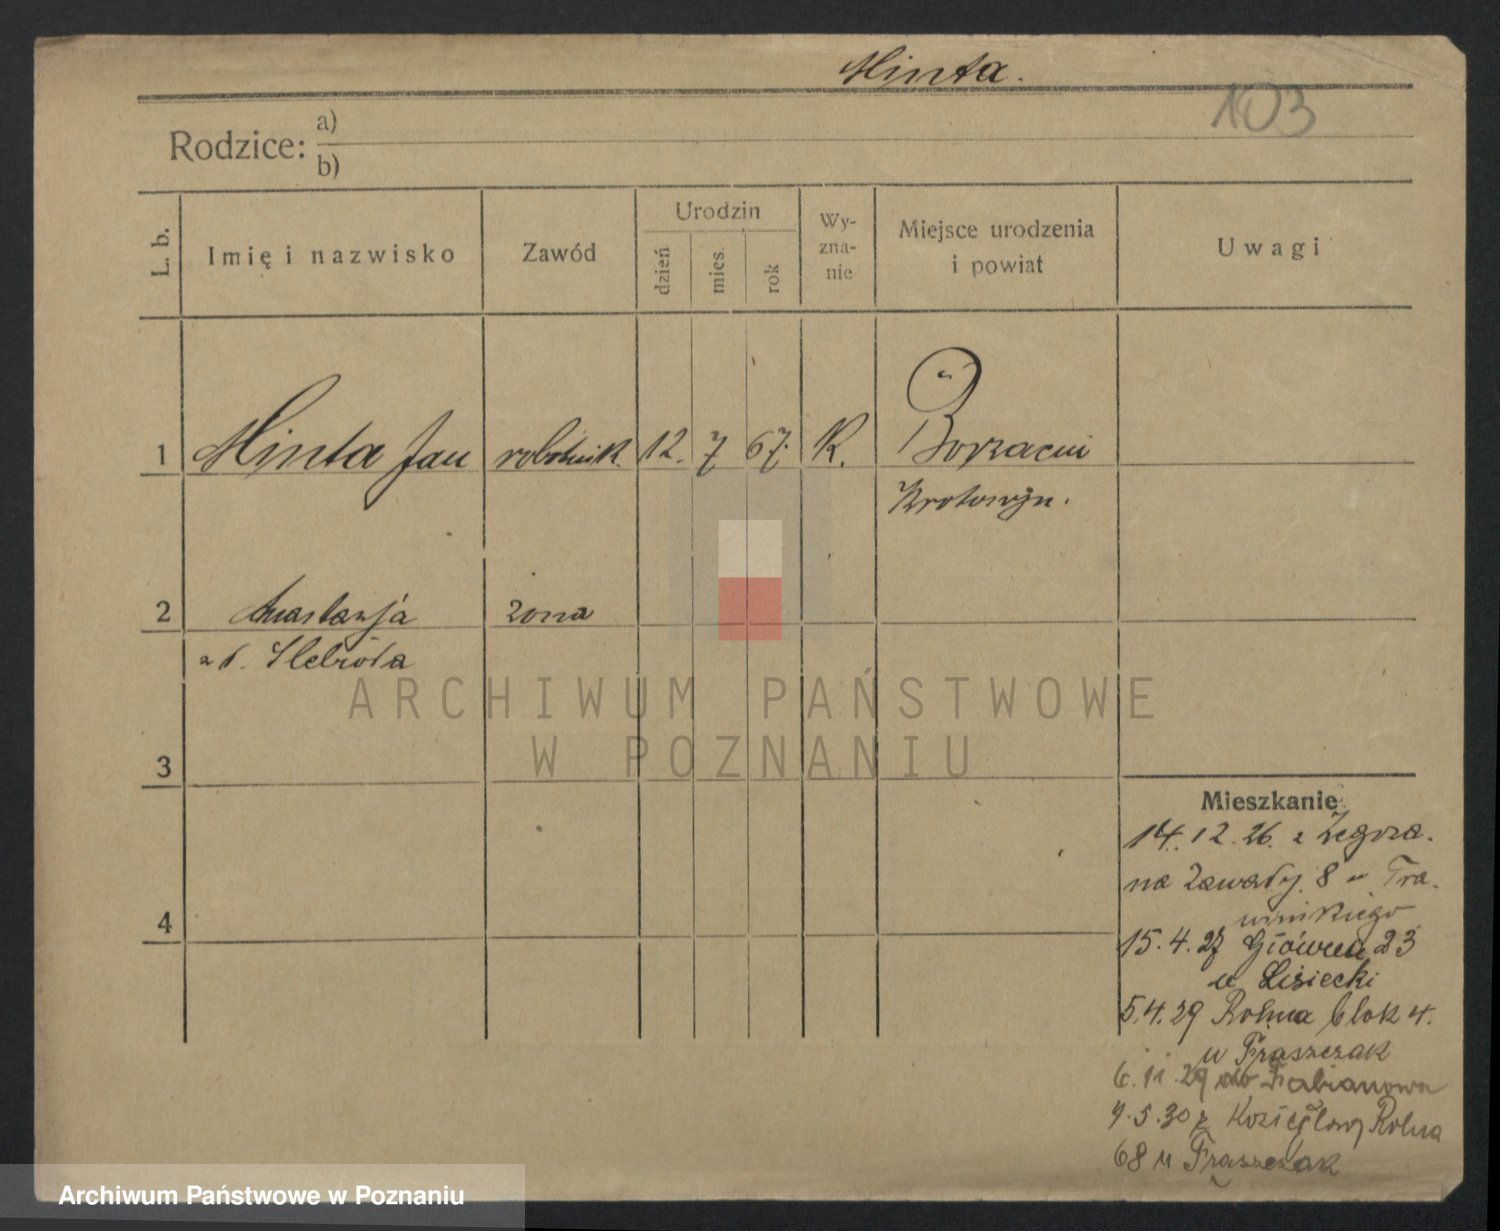 Minta.
103
Rodzice: a)
b)
L. b.
Imię i nazwisko
Zawód
Urodzin
dzień
mies.
rok
Wy-
zna-
nie
Miejsce urodzenia
i powiat
Uwagi
1 Minta Jan robotnik. 12. 7 67. K. Borzacin
Krotoszyn.
2 Anastazja żona
z d. Slebioda
3
4
ARCHIWUM PAŃSTWOWE
W POZNANIU
Mieszkanie
14.12.26. z Żegrza.
na Zawady 8 u Tra.
winskiego
15.4.27 Główna 23
u Lisiecki
5.4.29 Rolna blok 4.
u Frąszczak
6.11.29 do Fabianowa
9.5.30 z Koziegłowy Rolna
68 u Frąszczak
Archiwum Państwowe w Poznaniu